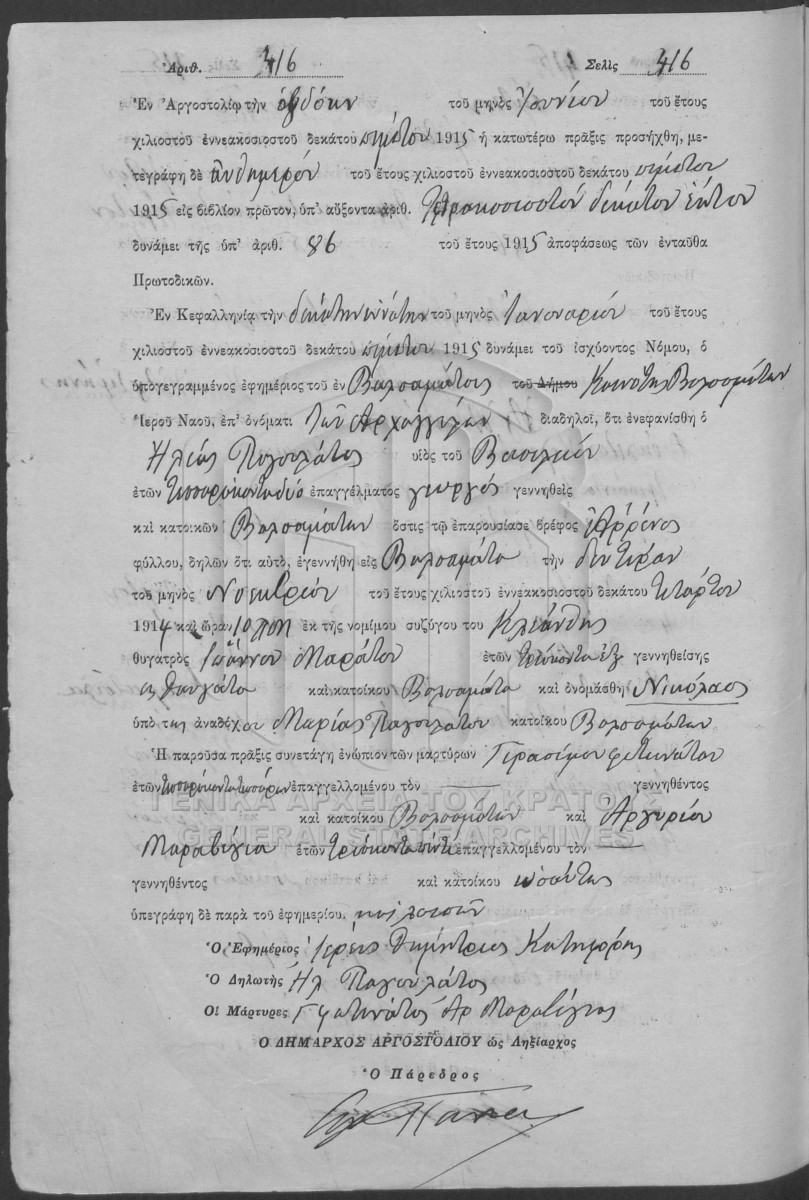 Ἀριθ. 416 Σελὶς 416
Ἐν Ἀργοστολίῳ τὴν ἑβδόμην τοῦ μηνὸς Ἰουνίου τοῦ ἔτους
χιλιοστοῦ ἐννεακοσιοστοῦ δεκάτου πέμπτου 1915 ἡ κατωτέρω πρᾶξις προσήχθη, με-
τεγράφη δὲ αὐθημερόν τοῦ ἔτους χιλιοστοῦ ἐννεακοσιοστοῦ δεκάτου πέμπτου
1915 εἰς βιβλίον πρῶτον, ὑπ' αὔξοντα ἀριθ. τετρακοσιοστόν δέκατον ἕκτον
δυνάμει τῆς ὑπ' ἀριθ. 86 τοῦ ἔτους 1915 ἀποφάσεως τῶν ἐνταῦθα
Πρωτοδικῶν.
Ἐν Κεφαλληνίᾳ τὴν δεκάτην ἐννάτην τοῦ μηνὸς Ἰανουαρίου τοῦ ἔτους
χιλιοστοῦ ἐννεακοσιοστοῦ δεκάτου πέμπτου 1915 δυνάμει τοῦ ἰσχύοντος Νόμου, ὁ
ὑπογεγραμμένος ἐφημέριος τοῦ ἐν Βαλσαμάτοις τοῦ Δήμου Κοινότης Βαλσαμάτων
Ἱεροῦ Ναοῦ, ἐπ' ὀνόματι τῶν Ἀρχαγγέλων διαδηλοῖ, ὅτι ἐνεφανίσθη ὁ
Ἠλίας Παγουλάτος υἱὸς τοῦ Βασιλείου
ἐτῶν τεσσαράκοντα δύο ἐπαγγέλματος γεωργός γεννηθεὶς
καὶ κατοικῶν Βαλσαμάτων ὅστις τῷ ἐπαρουσίασε βρέφος Ἄρρενος
φύλλου, δηλῶν ὅτι αὐτὸ, ἐγεννήθη εἰς Βαλσαμάτα τὴν δευτέραν
τοῦ μηνὸς Νοεμβρίου τοῦ ἔτους χιλιοστοῦ ἐννεακοσιοστοῦ δεκάτου τετάρτου
1914 καὶ ὥραν 10 πμ ἐκ τῆς νομίμου συζύγου του Κλεάνθης
θυγατρὸς Ἰωάννου Μαράτου ἐτῶν τριάκοντα ἕξ γεννηθείσης
καὶ κατοίκου Βαλσαμάτα καὶ ὀνομάσθη Νικόλαος
ὑπὸ της ἀναδόχου Μαρίας Παγουλάτου κατοίκου Βαλσαμάτων
Ἡ παροῦσα πρᾶξις συνετάγη ἐνώπιον τῶν μαρτύρων Γερασίμου Φατεινάτου
ἐτῶν τεσσαράκοντα τεσσάρων ἐπαγγελλομένου τὸν — γεννηθέντος
καὶ κατοίκου Βαλσαμάτων καὶ Ἀργυρίου
Μαραβέγια ἐτῶν τριάκοντα πέντε ἐπαγγελλομένου τὸν —
γεννηθέντος καὶ κατοίκου ὡσαύτως
ὑπεγράφη δὲ παρὰ τοῦ ἐφημερίου. καὶ λοιπῶν
Ὁ Ἐφημέριος Ἱερεύς Δημήτριος
Ὁ Δηλωτὴς Ηλ Παγουλάτος
Οἱ Μάρτυρες Γ Φατεινάτος Αρ Μαραβέγιας
Ο ΔΗΜΑΡΧΟΣ ΑΡΓΟΣΤΟΛΙΟΥ ὡς Ληξίαρχος
Ὁ Πάρεδρος
ΓΕΝΙΚΑ ΑΡΧΕΙΑ ΤΟΥ ΚΡΑΤΟΥΣ
GENERAL STATE ARCHIVES